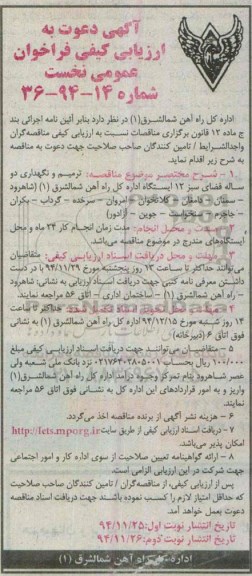 آگهی دعوت به
ارزیابی کیفی فراخوان
عمومی نخست
شماره ۱۴-۹۴-۳۶
اداره کل راه آهن شمالشرق(۱) در نظر دارد بنابر آئین نامه اجرائی بند
ج ماده ۱۲ قانون برگزاری مناقصات نسبت به ارزیابی کیفی مناقصه‌گران
واجدالشرایط / تامین کنندگان صاحب صلاحیت جهت دعوت به مناقصه
به شرح زیر اقدام نماید.
۱ - شرح مختصر موضوع مناقصه: ترمیم و نگهداری دو
ساله فضای سبز ۱۲ ایستگاه اداره کل راه آهن شمالشرق (۱) (شاهرود
- سمنان - دامغان - کلاتخوان - امروان - سرخده - گرداب - بکران
جاجرم - سنخواست - جوین - آزادور)
۲ - مدت و محل انجام: مدت زمان انجام کار ۲۴ ماه و محل
ایستگاه‌های مندرج در موضوع مناقصه می‌باشد.
۳ - مهلت و محل دریافت اسناد ارزیابی کیفی: متقاضیان
می‌توانند حداکثر تا ساعت ۱۳ روز پنجشنبه مورخ ۹۴/۱۱/۲۹ با در دست
داشتن معرفی نامه کتبی جهت دریافت اسناد ارزیابی به نشانی: شاهرود
- راه آهن شمالشرق (۱) - ساختمان اداری - اتاق ۵۶ مراجعه نمایند.
حداکثر تا ساعت
۱۴ روز شنبه مورخ ۹۴/۱۲/۱۵ اداره کل راه آهن شمالشرق (۱) به نشانی
فوق اتاق ۶ (دبیرخانه)
۵ - متقاضیان می‌توانند جهت دریافت اسناد ارزیابی کیفی مبلغ
۱۰۰/۰۰۰ ریال بحساب نزد بانک ملی شعبه ولی
عصر شاهرود بنام تمرکز وجوه درآمد اداره کل راه آهن شمالشرق(۱)
واریز و به امور قراردادهای این اداره کل به نشانی فوق اتاق ۵۶ مراجعه
نمایند.
۶ - هزینه نشر آگهی از برنده مناقصه اخذ می‌گردد.
۷ - دریافت اسناد ارزیابی کیفی از طریق سایت http://iets.mporg.ir
امکان پذیر می‌باشد.
۸ - ارائه گواهینامه تعیین صلاحیت از سوی اداره کار و امور اجتماعی
جهت شرکت در این ارزیابی الزامی است.
پس از ارزیابی کیفی، از مناقصه‌گران / تامین کنندگان صاحب صلاحیت
که حداقل امتیاز لازم را کسب نموده باشند جهت دریافت اسناد مناقصه
دعوت بعمل خواهد آمد.
تاریخ انتشار نوبت اول: ۹۴/۱۱/۲۵
تاریخ انتشار نوبت دوم: ۹۴/۱۱/۲۶
اداره کل راه آهن شمالشرق (۱)